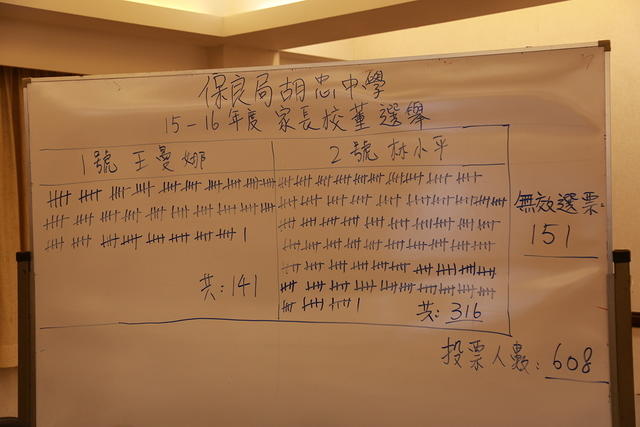 保良局胡忠中學
15-16年度 家長校董選舉
1號 王曼娜
共: 141
2號 林小平
共: 316
無效選票:
151
投票人數: 608